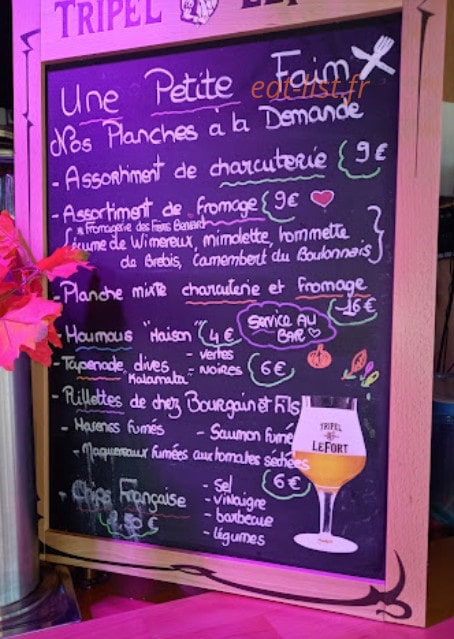 TRIPEL LEFORT
Une Petite Faim
eat-list.fr
Nos Planches à la Demande
- Assortiment de charcuterie 9€
- Assortiment de fromage 9€
* Fromagerie des Frères Bernard
(écume de Wimereux, mimolette, tommette
de Brebis, Camembert du Boulonnais)
- Planche mixte charcuterie et fromage
16€
- Houmous "Maison" 4€
SERVICE AU
BAR
- Tapenade olives - vertes
Kalamata - noires 6€
- Rillettes de chez Bourgain et Fils
- Harengs fumés - Saumon fumé
- Maquereaux fumées aux tomates séchées
6€
- Chips Française
2,50€
- sel
- vinaigre
- barbecue
- légumes
TRIPEL
LEFORT